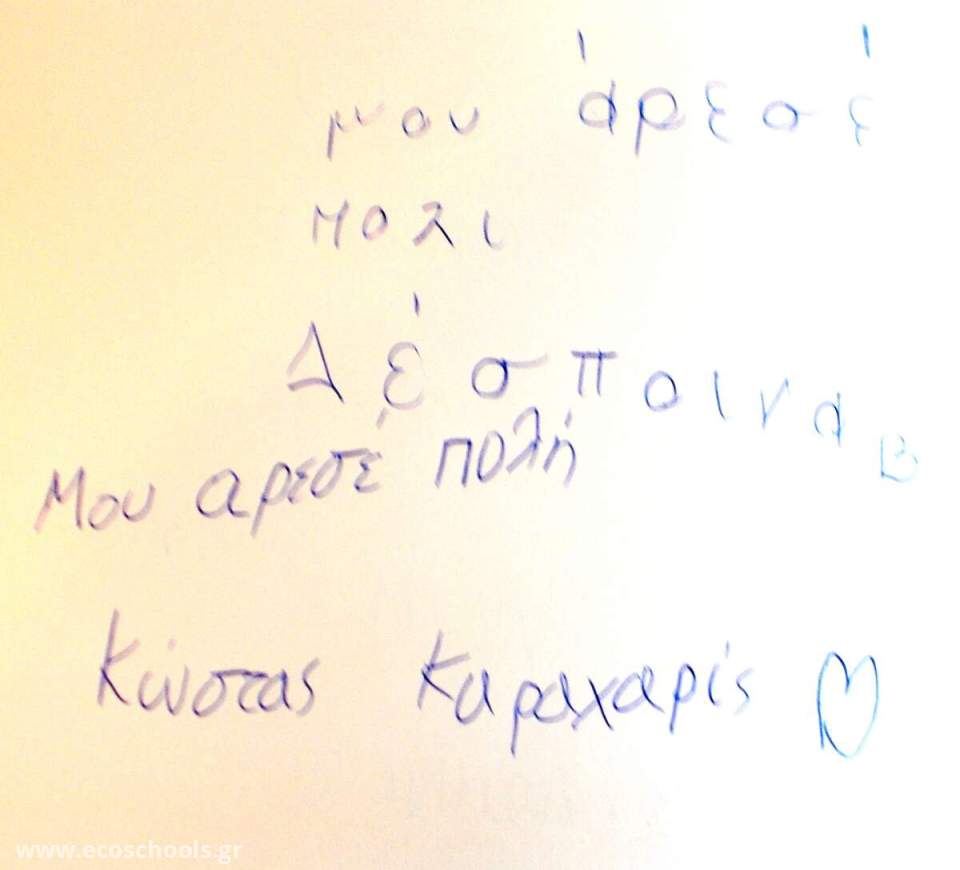 μου άρεσέ
πολι
Δέσποινα Β
Μου αρεσέ πολή
Κώστας Καραχαρίς
www.ecoschools.gr